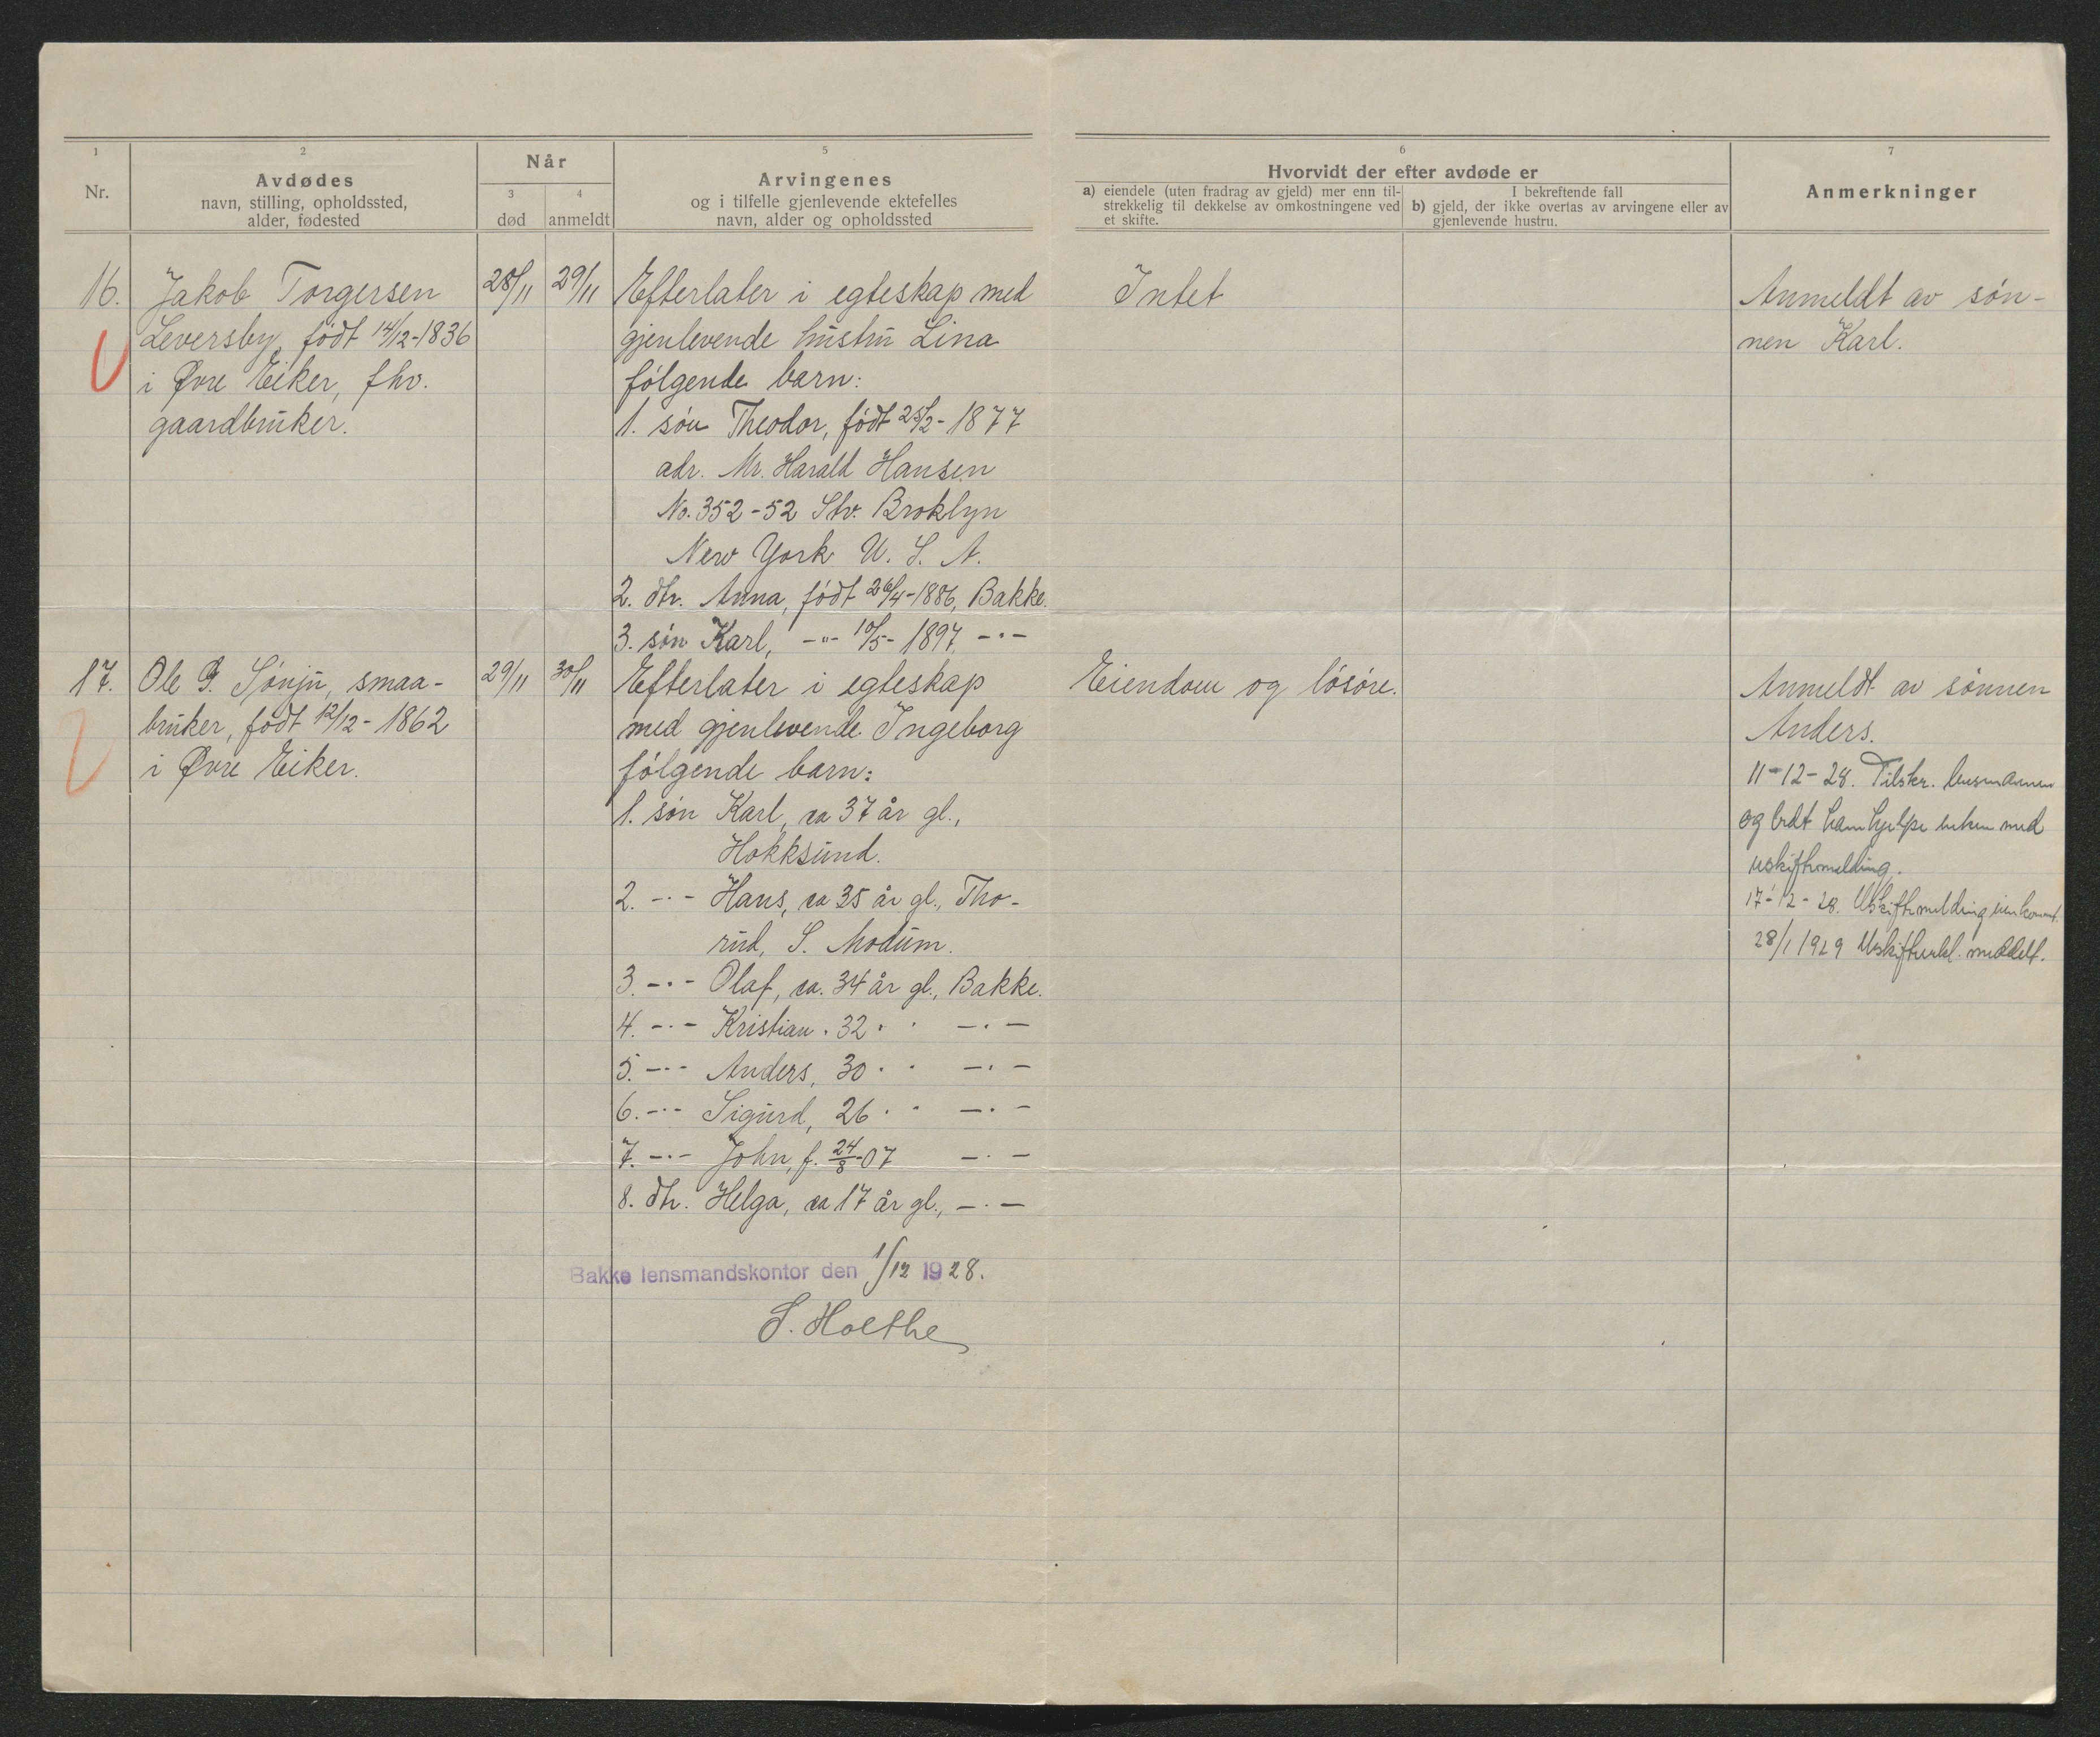 1
2
Når
5
6
7
Nr.
Avdødes
navn, stilling, opholdssted,
alder, fødested
3
død
4
anmeldt
Arvingenes
og i tilfelle gjenlevende ektefelles
navn, alder og opholdssted
Hvorvidt der efter avdøde er
a) eiendele (uten fradrag av gjeld) mer enn til-
strekkelig til dekkelse av omkostningene ved
et skifte.
I bekreftende fall
b) gjeld, der ikke overtas av arvingene eller av
gjenlevende hustru.
Anmerkninger
16.
Jakob Torgersen
Leversby, født 14/12-1836
i Øvre Eiker, fhv.
gaardbruker.
28/11
29/11
Efterlater i egteskap med
gjenlevende hustru Lina
følgende barn:
1. søn Theodor, født 25/2-1877
adr. Mr. Harald Hansen
No. 352-52 Str. Broklyn
New York U. S. A.
2. dtr. Anna, født 26/4-1886, Bakke.
3. søn Karl, -"- 10/5-1897, -"-
Intet
Anmeldt av søn-
nen Karl.
17.
Ole G. Sønju, smaa-
bruker, født 12/12-1862
i Øvre Eiker.
29/11
30/11
Efterlater i egteskap
med gjenlevende Ingeborg
følgende barn:
1. søn Karl, ca 37 år gl.,
Hokksund.
2. -"- Hans, ca 35 år gl., Tho-
rud, S. Modum.
3. -"- Olaf, ca. 34 år gl., Bakke.
4. -"- Kristian " 32 " " -"-
5. -"- Anders, 30 " " -"-
6. -"- Sigurd, 26 " " -"-
7. -"- John, f. 24/8-07 -"-
8. dtr. Helga, ca 17 år gl., -"-
Eiendom og løsøre.
Anmeldt av sønnen
Anders.
11-12-28. Tilskr. lensmannen
og bedt ham hjelpe enken med
uskiftemelding.
17-12-28. Uskiftemelding innkommet.
28/1 1929 Uskifteerkl. meddelt.
Bakke lensmandskontor den 1/12 1928.
S. Holthe